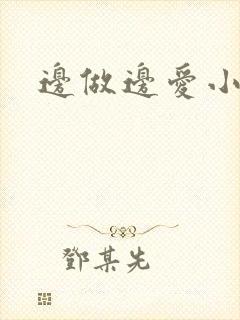 邊做邊愛小
鄧某先